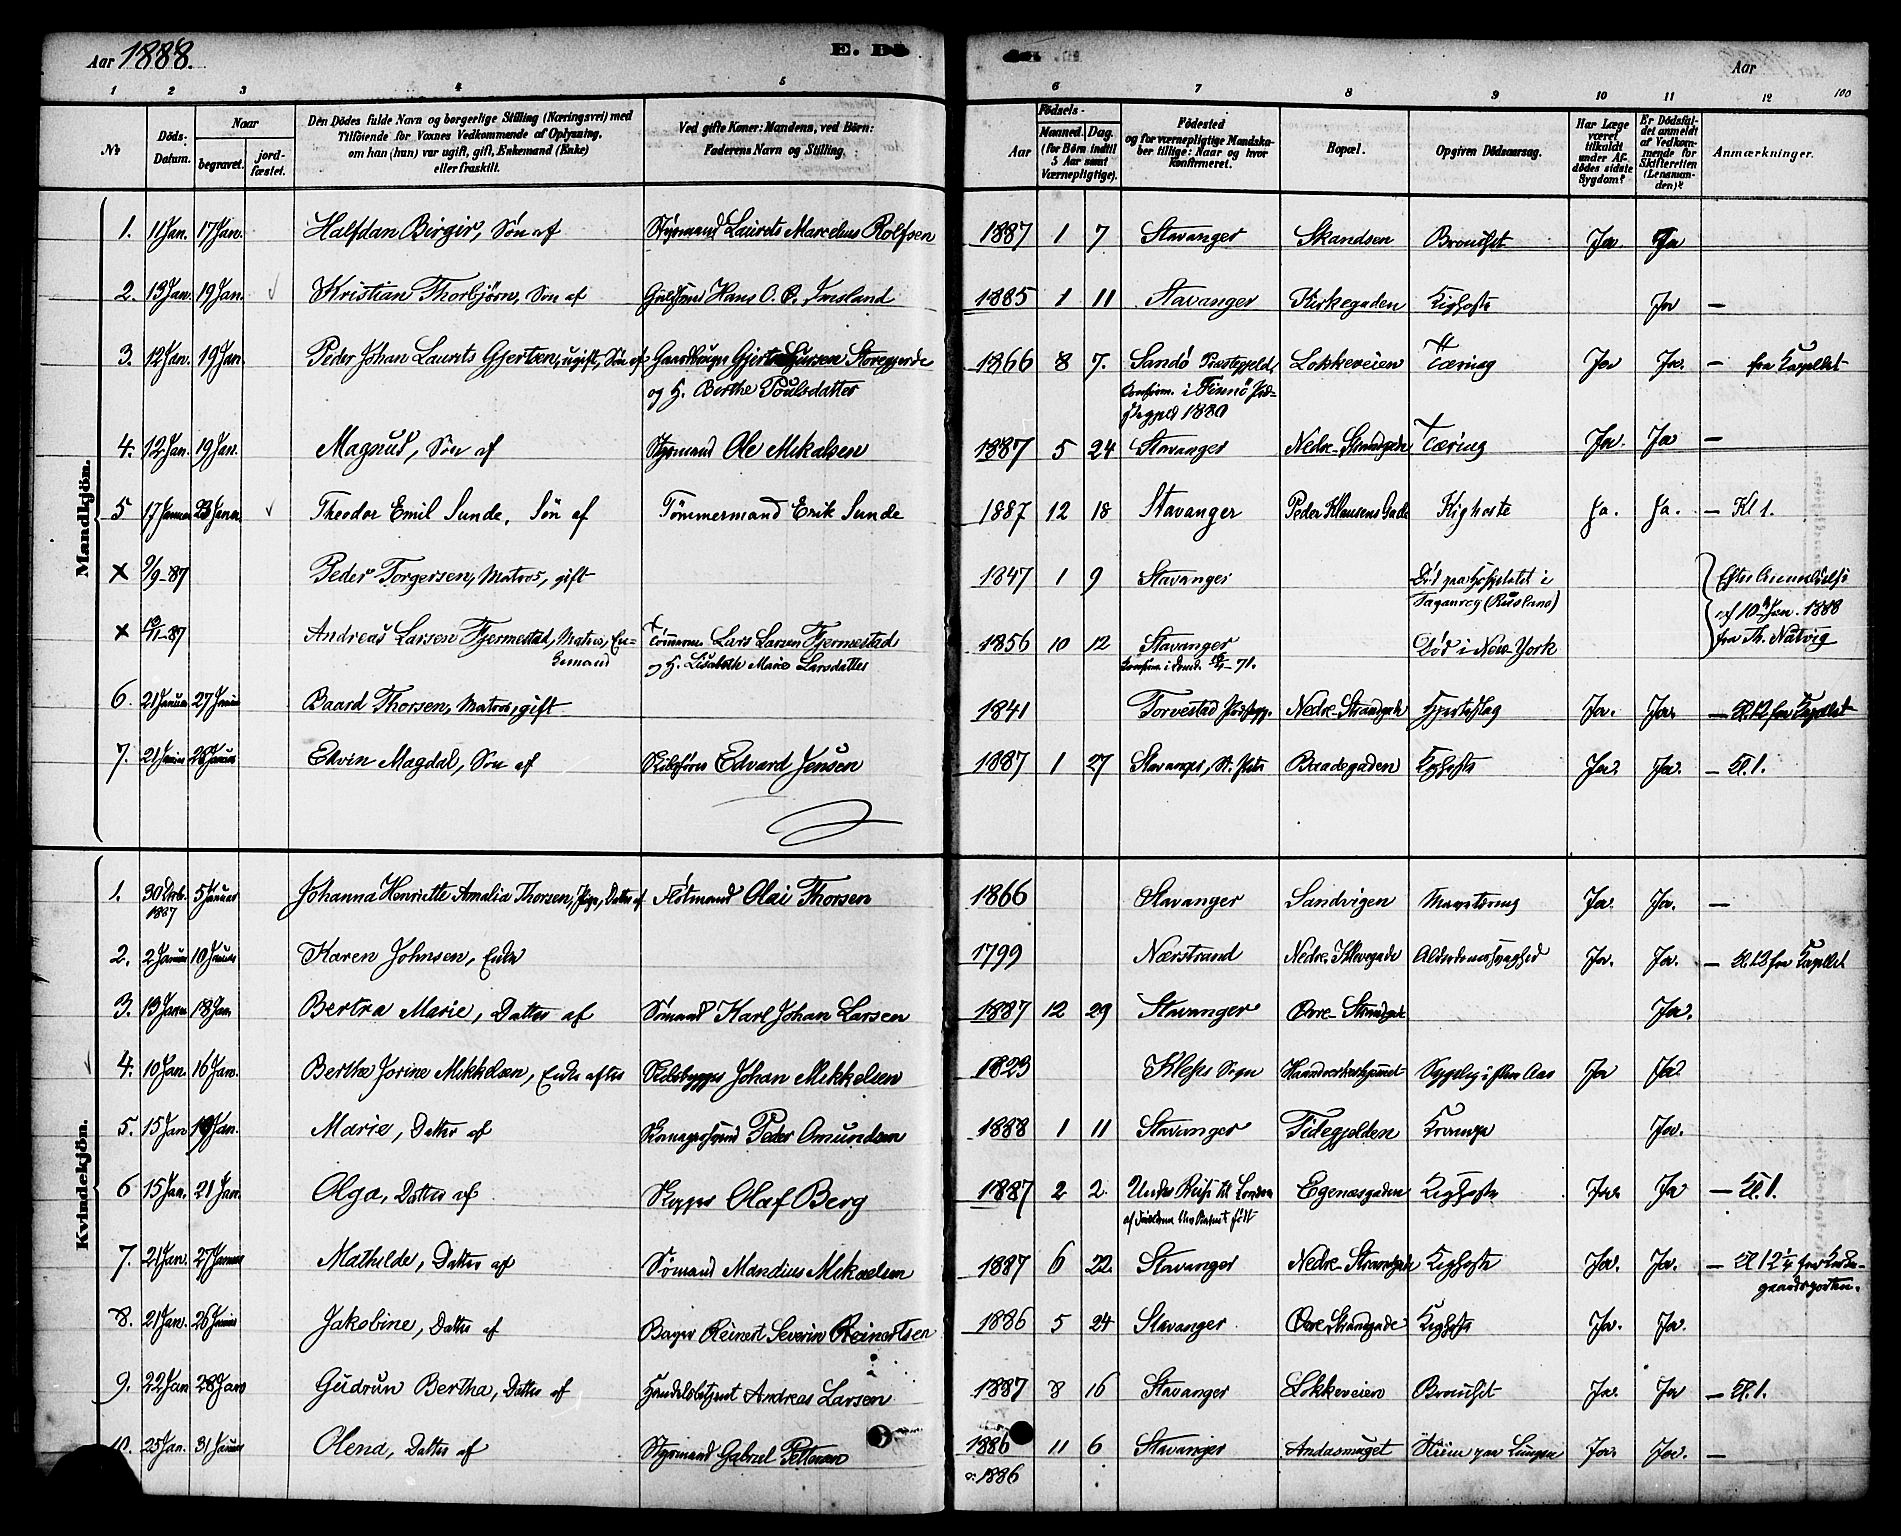 Aar 1888.
E. Dö
Aar
100
1 2 3 4 5 6 7 8 9 10 11 12
No
Döds-Datum.
Naar
begravet.
jord-fæstet.
Den Dödes fulde Navn og borgerlige Stilling (Næringsvei) med
Tilföiende for Voxnes Vedkommende af Oplysning,
om han (hun) var ugift, gift, Enkemand (Enke)
eller fraskilt.
Ved gifte Koner: Mandens, ved Börn:
Faderens Navn og Stilling.
Födsels-
Aar
Maaned. Dag.
(for Börn indtil
5 Aar samt
Værnepligtige).
Födested
og for værnepligtige Mandska-
ber tillige: Naar og hvor
konfirmeret.
Bopæl.
Opgiven Dödsaarsag.
Har Læge
været
tilkaldt
under Af-
dödes sidste
Sygdom?
Er Dödsfal-
det anmeldt
af Vedkom-
mende for
Skifteretten
(Lensman-
den)?
Anmærkninger.
Mandkjön.
1. 11 Jan. 17 Jan. Halfdan Birgir, Søn af Styrmand Laurets Marcelius Rolfsen 1887 1 7 Stavanger Skandsen Bronchit Ja Ja
2. 13 Jan. 19 Jan. Kristian Thorbjørn, Søn af Hans O. P. 1885 1 11 Stavanger Kirkegaden Kighoste Ja —
3. 12 Jan. 19 Jan. Peder Johan Laurets Gjertsen, ugift, Søn af Gaardbruger 1866 8 7. Sandö Præstegjeld, Løkkeveien Tæring Ja Ja. — fra Kapellet
og H. Berthe Poulsdatter Konfirm. i Finnö
1880
4. 12 Jan. 19 Jan. Magnus, Søn af Styrmand Ole Mikalsen 1887 5 24 Stavanger Nedre Strandgade Tæring Ja. Ja —
5 17 Januar 23 Januar Theodor Emil Sunde, Søn af Tömmermand Erik Sunde 1887 12 18 Stavanger Peder Klausens Gade Kighoste Ja. Ja. — Kl 1.
x 9/9-87 Peder Torgersen, Matros, gift 1847 1 9 Stavanger Död paa Hospitalet i
Taganrog (Rusland)
Efter Anmeldelse
af 10de Jan. 1888
fra Th. Natvig
x -87 Andreas Larsen Fjermestad, Matros, En-
kemand
Tömmerm. Lars Larsen Fjermestad
og H. Lisabeth Marie Larsdatter 1856 10 12 Stavanger Död i New York
71.
6. 21 Januar 27 Januar Baard Thorsen, Matros, gift 1841 Torvestad Nedre Strandgade Hjerteslag Ja. Ja. — Kl. 12 fra Kapellet
7. 21 Januar 28 Januar Edvin Magdal, Søn af Skibsfører Edvard Jensen 1887 1 27 Stavanger, St. Petri Baadegaden Kighoste Ja. Ja. — Kl. 1.
Kvindekjön.
1. 30 Decb. 1887 5 Januar Johanna Henriette Amalia Thorsen, Pige, Datter af Olai Thorsen 1866 Stavanger Sandvigen Ja. Ja. —
2. 2 Januar 10 Januar Karen Johnsen, Enke 1799 Nærstrand Nedre Klevegade Alderdomssvaghed Ja. Ja. — Kl. 12 fra Kapellet
3. 13 Januar 18 Jan Bertra Marie, Datter af Sömand Karl Johan Larsen 1887 12 29 Stavanger Övre Strandgade Ja.
4. 10 Jan. 16 Jan. Berthe Jorine Mikkelsen, Enke efter Skibsbygger Johan Mikkelsen 1823 Kleps Sogn Ja Ja.
5. 15 Jan 19 Jan. Marie, Datter af Peder Omundsen 1888 1 11 Stavanger Fidegjelden Krampe Ja.
6 15 Jan. 21 Jan. Olga, Datter af Skipper Olaf Berg 1887 2 2. Under Reise til London Egenæsgaden Kighoste Ja. Ja — Kl. 1.
født
7. 21 Jan. 27 Januar Mathilde, Datter af Sömand Mandius Mikaelsen 1887 6 22. Stavanger Nedre Strandgade Kighoste Ja. Ja. — Kl 12 1/4 fra Kirke-
gaardsporten.
8. 21 Jan. 26 Januar Jakobine, Datter af Bager Reinert Severin Reinertsen 1886 5 24 Stavanger. Övre Strandgade Kighoste Ja. Ja.
9. 22 Jan 28 Jan Gudrun Bertha, Datter af Handelsbetjent Andreas Larsen 1887 8 16 Stavanger Løkkeveien Bronchit Ja. Ja — Kl. 1.
10. 25 Jan. 31 Januar Olena, Datter af Styrmand Gabriel Pettersen 1886 11 6 Stavanger Andasmuget Ja. Ja. —
1886